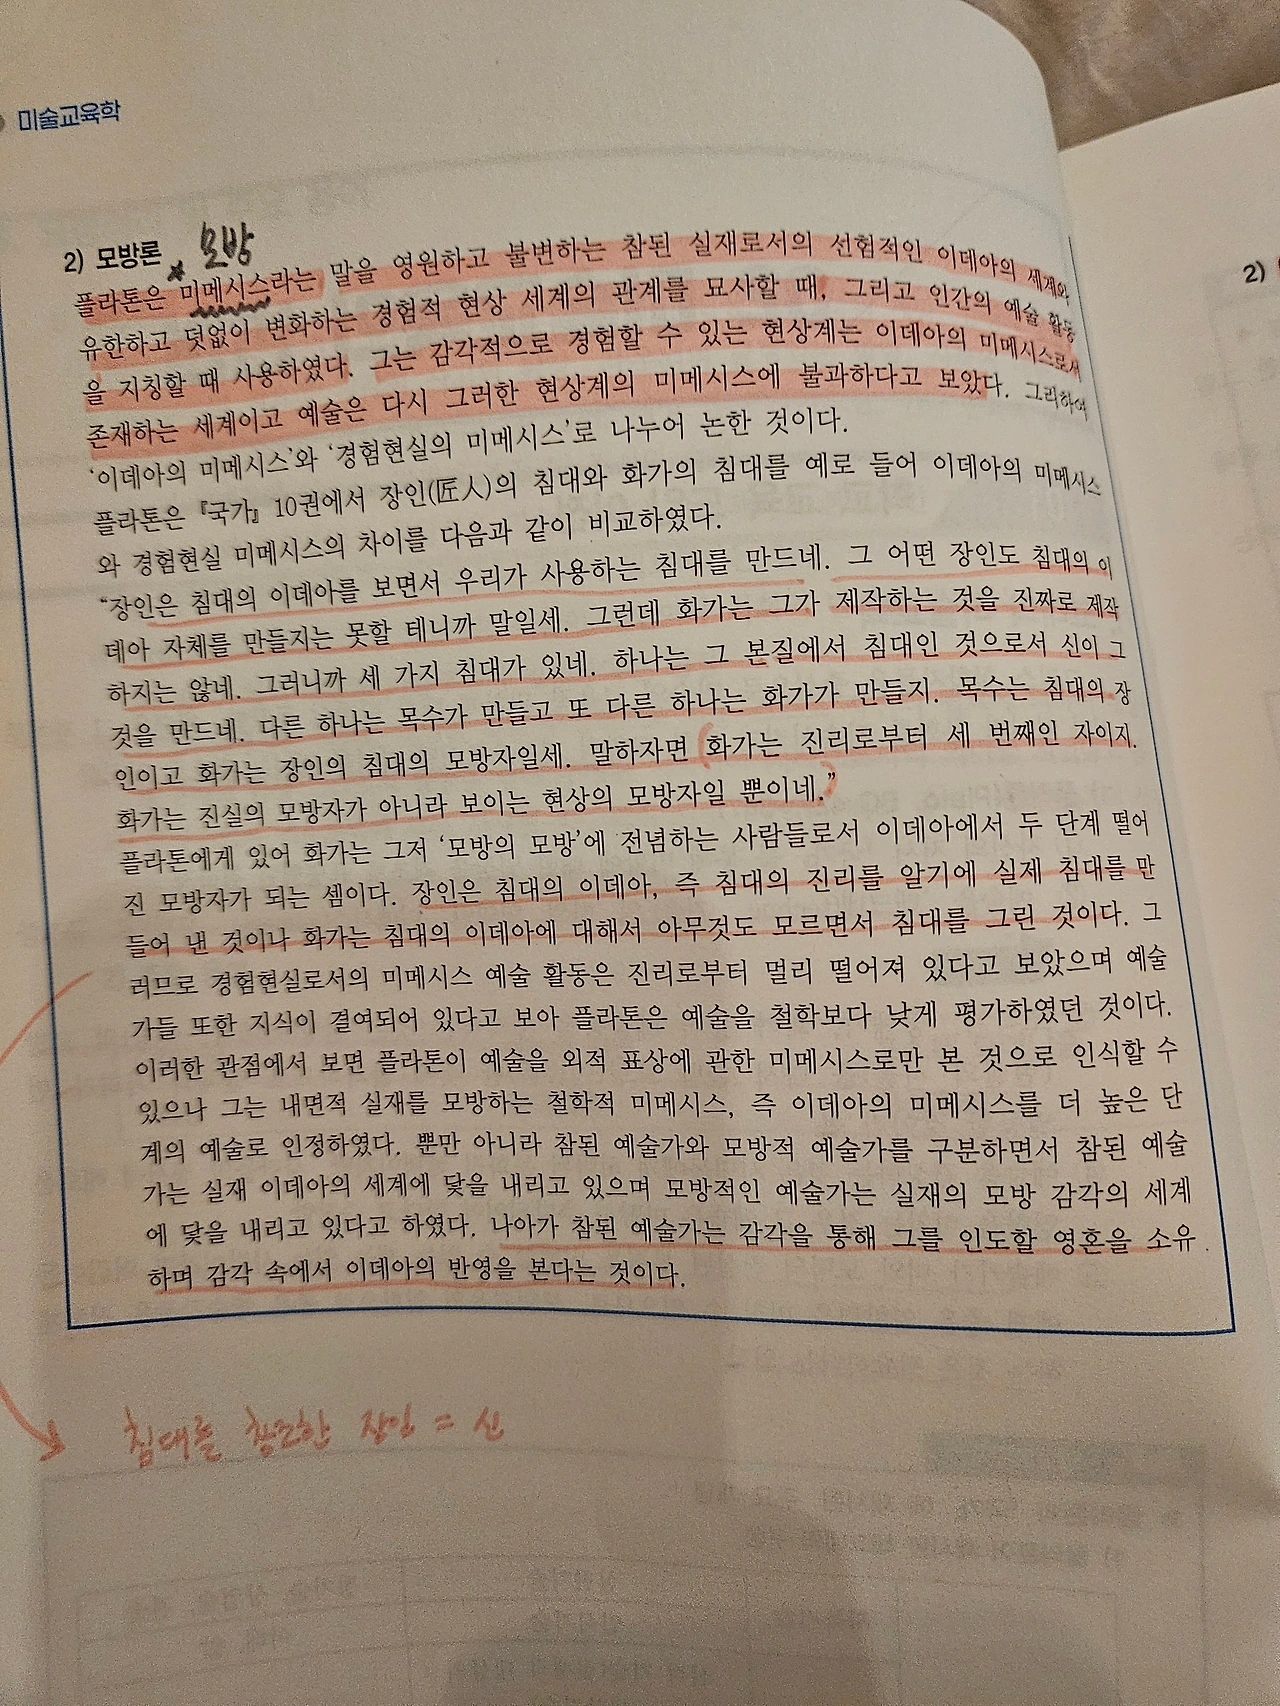 미술교육학
2) 모방론
모방
플라톤은 미메시스라는 말을 영원하고 불변하는 참된 실재로서의 선험적인 이데아의 세계와
유한하고 덧없이 변화하는 경험적 현상 세계의 관계를 묘사할 때, 그리고 인간의 예술 활동
을 지칭할 때 사용하였다. 그는 감각적으로 경험할 수 있는 현상계는 이데아의 미메시스로서
존재하는 세계이고 예술은 다시 그러한 현상계의 미메시스에 불과하다고 보았다. 그리하여
‘이데아의 미메시스’와 ‘경험현실의 미메시스’로 나누어 논한 것이다.
플라톤은 『국가』 10권에서 장인(匠人)의 침대와 화가의 침대를 예로 들어 이데아의 미메시스
와 경험현실 미메시스의 차이를 다음과 같이 비교하였다.
“장인은 침대의 이데아를 보면서 우리가 사용하는 침대를 만드네. 그 어떤 장인도 침대의 이
데아 자체를 만들지는 못할 테니까 말일세. 그런데 화가는 그가 제작하는 것을 진짜로 제작
하지는 않네. 그러니까 세 가지 침대가 있네. 하나는 그 본질에서 침대인 것으로서 신이 그
것을 만드네. 다른 하나는 목수가 만들고 또 다른 하나는 화가가 만들지. 목수는 침대의 장
인이고 화가는 장인의 침대의 모방자일세. 말하자면 화가는 진리로부터 세 번째인 자이지.
화가는 진실의 모방자가 아니라 보이는 현상의 모방자일 뿐이네.”
플라톤에게 있어 화가는 그저 ‘모방의 모방’에 전념하는 사람들로서 이데아에서 두 단계 떨어
진 모방자가 되는 셈이다. 장인은 침대의 이데아, 즉 침대의 진리를 알기에 실제 침대를 만
들어 낸 것이나 화가는 침대의 이데아에 대해서 아무것도 모르면서 침대를 그린 것이다. 그
러므로 경험현실로서의 미메시스 예술 활동은 진리로부터 멀리 떨어져 있다고 보았으며 예술
가들 또한 지식이 결여되어 있다고 보아 플라톤은 예술을 철학보다 낮게 평가하였던 것이다.
이러한 관점에서 보면 플라톤이 예술을 외적 표상에 관한 미메시스로만 본 것으로 인식할 수
있으나 그는 내면적 실재를 모방하는 철학적 미메시스, 즉 이데아의 미메시스를 더 높은 단
계의 예술로 인정하였다. 뿐만 아니라 참된 예술가와 모방적 예술가를 구분하면서 참된 예술
가는 실재 이데아의 세계에 닻을 내리고 있으며 모방적인 예술가는 실재의 모방 감각의 세계
에 닻을 내리고 있다고 하였다. 나아가 참된 예술가는 감각을 통해 그를 인도할 영혼을 소유
하며 감각 속에서 이데아의 반영을 본다는 것이다.
침대를 창조한 장인 = 신
2)